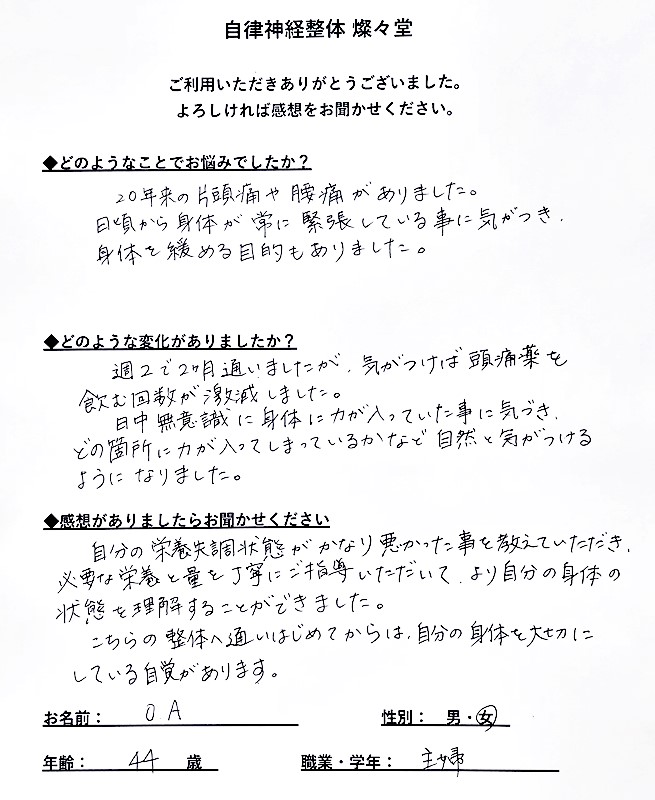 自律神経整体 燦々堂
ご利用いただきありがとうございました。
よろしければ感想をお聞かせください。
◆どのようなことでお悩みでしたか？
20年来の片頭痛や腰痛がありました。
日頃から身体が常に緊張している事に気がつき、
身体を緩める目的もありました。
◆どのような変化がありましたか？
週2で2ヶ月通いましたが、気がつけば頭痛薬を
飲む回数が激減しました。
日中無意識に身体に力が入っていた事に気づき、
どの箇所に力が入ってしまっているかなど自然と気がつける
ようになりました。
◆感想がありましたらお聞かせください
自分の栄養失調状態がかなり悪かった事を教えていただき、
必要な栄養と量を丁寧にご指導いただいて、より自分の身体の
状態を理解することができました。
こちらの整体へ通いはじめてからは、自分の身体を大切に
している自覚があります。
お名前： O.A 性別： 男・女
年齢： 44 歳 職業・学年： 主婦